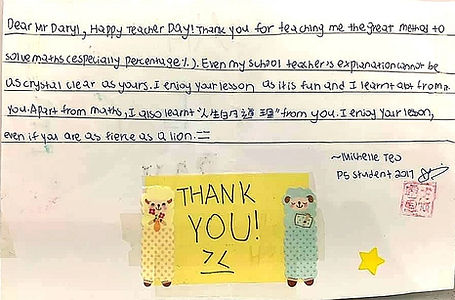 Dear Mr Daryl, Happy Teacher Day! Thank you for teaching me the great method to
solve maths (especially percentage %). Even my school teacher's explanation cannot be
as crystal clear as yours. I enjoy your lesson as it is fun and I learnt abt from
you. Apart from maths, I also learnt "人生的道理" from you. I enjoy your lesson,
even if you are as fierce as a lion.
~Michelle Teo
P5 student 2017
THANK
YOU!